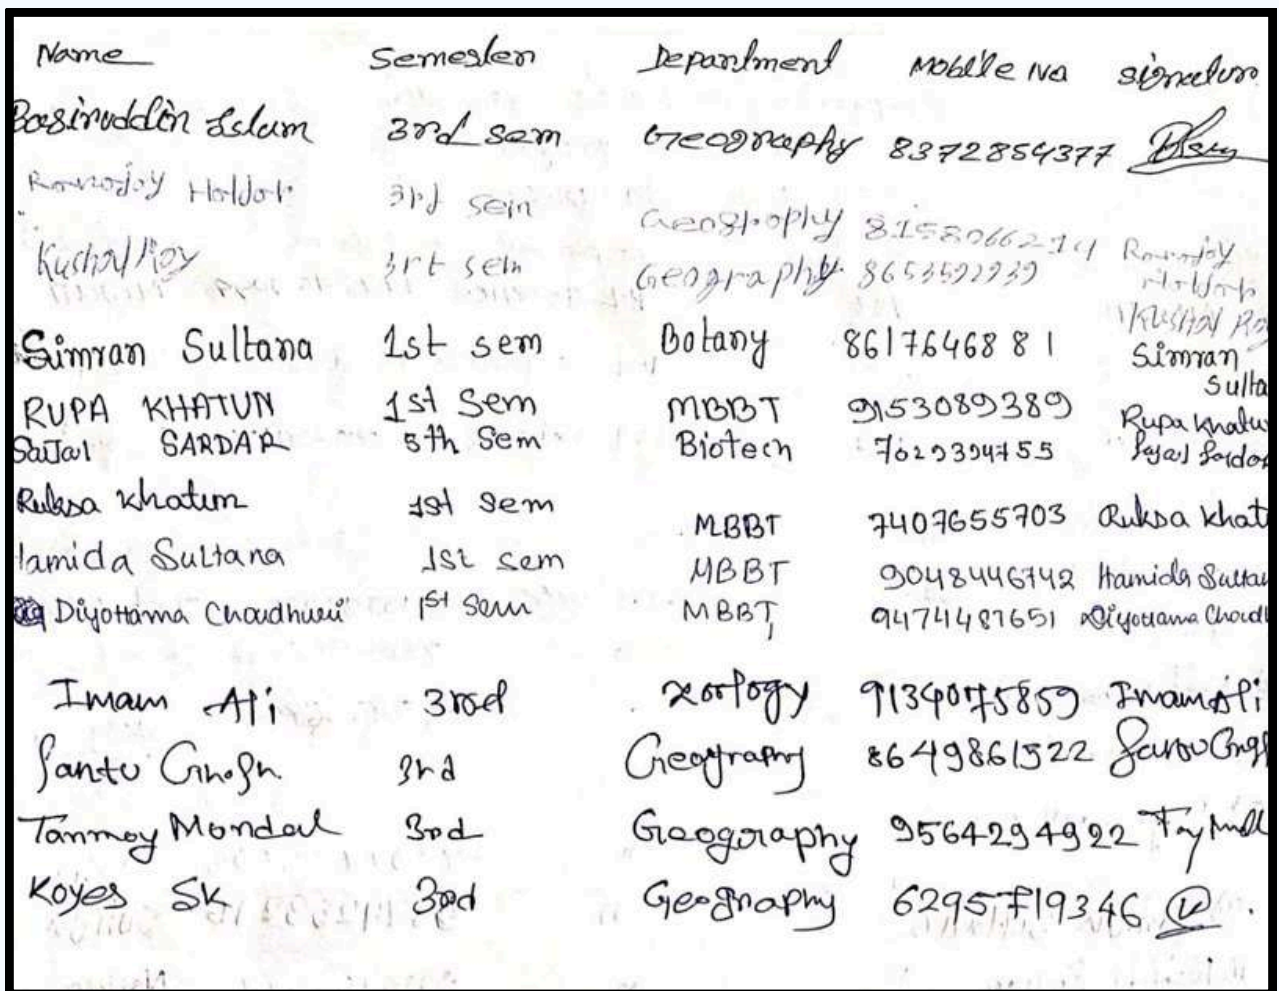 Name Semester Department Mobile No signature
Basiruddin Islam 3rd sem Geography 8372854377
Ronojoy Holdar 3rd sem Geography 8158066214 Ronojoy Holdar
Kushal Roy 3rt sem Geography 8653592939 Kushal Roy
Simran Sultana 1st sem Botany 8617646881 Simran Sulta
RUPA KHATUN 1st Sem MBBT 9153089389 Rupa Khatu
SaJal SARDAR 5th Sem Biotech 7029394755
Ruksa Khatun 1st Sem MBBT 7407655703 Ruksa Khat
Hamida Sultana 1st sem MBBT 9048446742 Hamida Sultan
Diyottama Chaudhuri 1st Sem MBBT 9474487651 Diyottama Chaudh
Imam Ali 3rd Zoology 9134075859 Imam Ali
Santu Ghosh 3rd Geography 8649861522
Tanmoy Mondal 3rd Geography 9564294922
Koyes SK 3rd Geography 6295719346